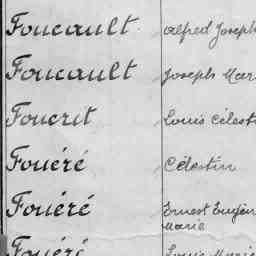 Foucault Alfred Joseph
Foucault Joseph Mar
Foucrit Louis Célest
Fouéré Célestin
Fouéré Ernest Eugèn
Marie
Fouéré Louis Marie